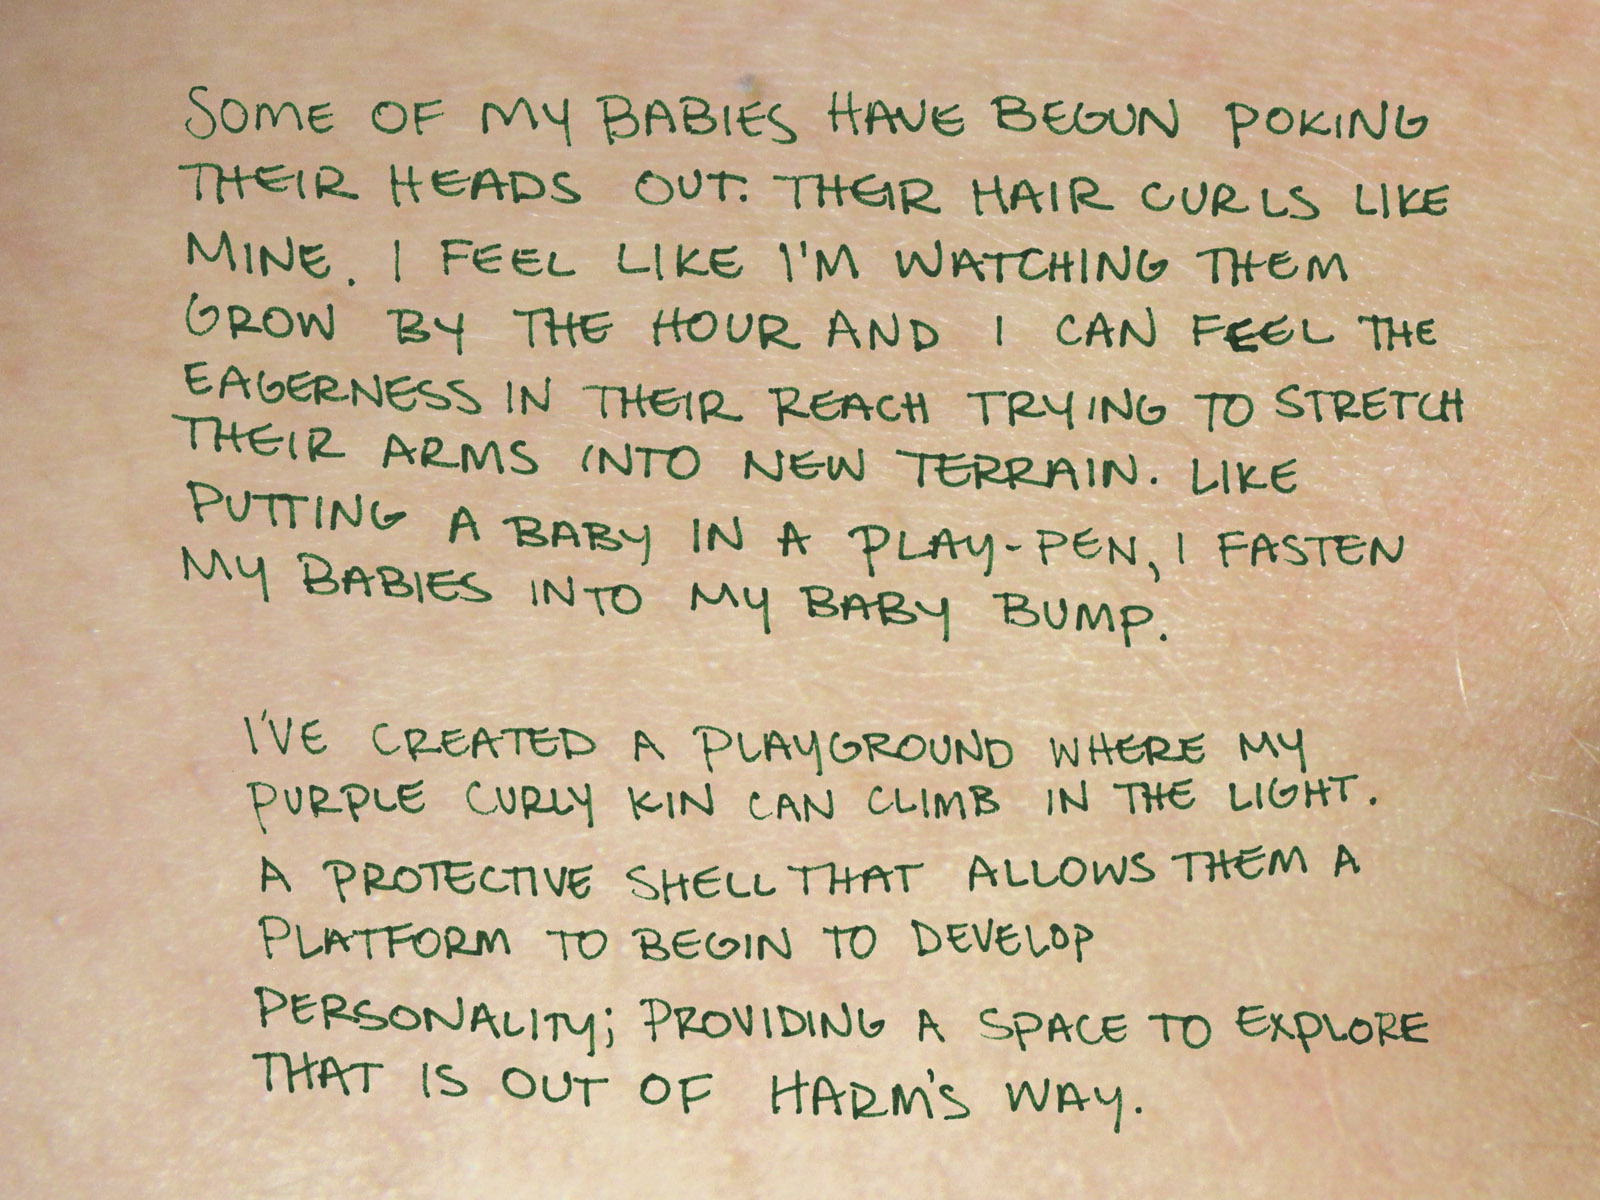 SOME OF MY BABIES HAVE BEGUN POKING
THEIR HEADS OUT. THEIR HAIR CURLS LIKE
MINE. I FEEL LIKE I'M WATCHING THEM
GROW BY THE HOUR AND I CAN FEEL THE
EAGERNESS IN THEIR REACH TRYING TO STRETCH
THEIR ARMS INTO NEW TERRAIN. LIKE
PUTTING A BABY IN A PLAY-PEN, I FASTEN
MY BABIES INTO MY BABY BUMP.
I'VE CREATED A PLAYGROUND WHERE MY
PURPLE CURLY KIN CAN CLIMB IN THE LIGHT.
A PROTECTIVE SHELL THAT ALLOWS THEM A
PLATFORM TO BEGIN TO DEVELOP
PERSONALITY; PROVIDING A SPACE TO EXPLORE
THAT IS OUT OF HARM'S WAY.